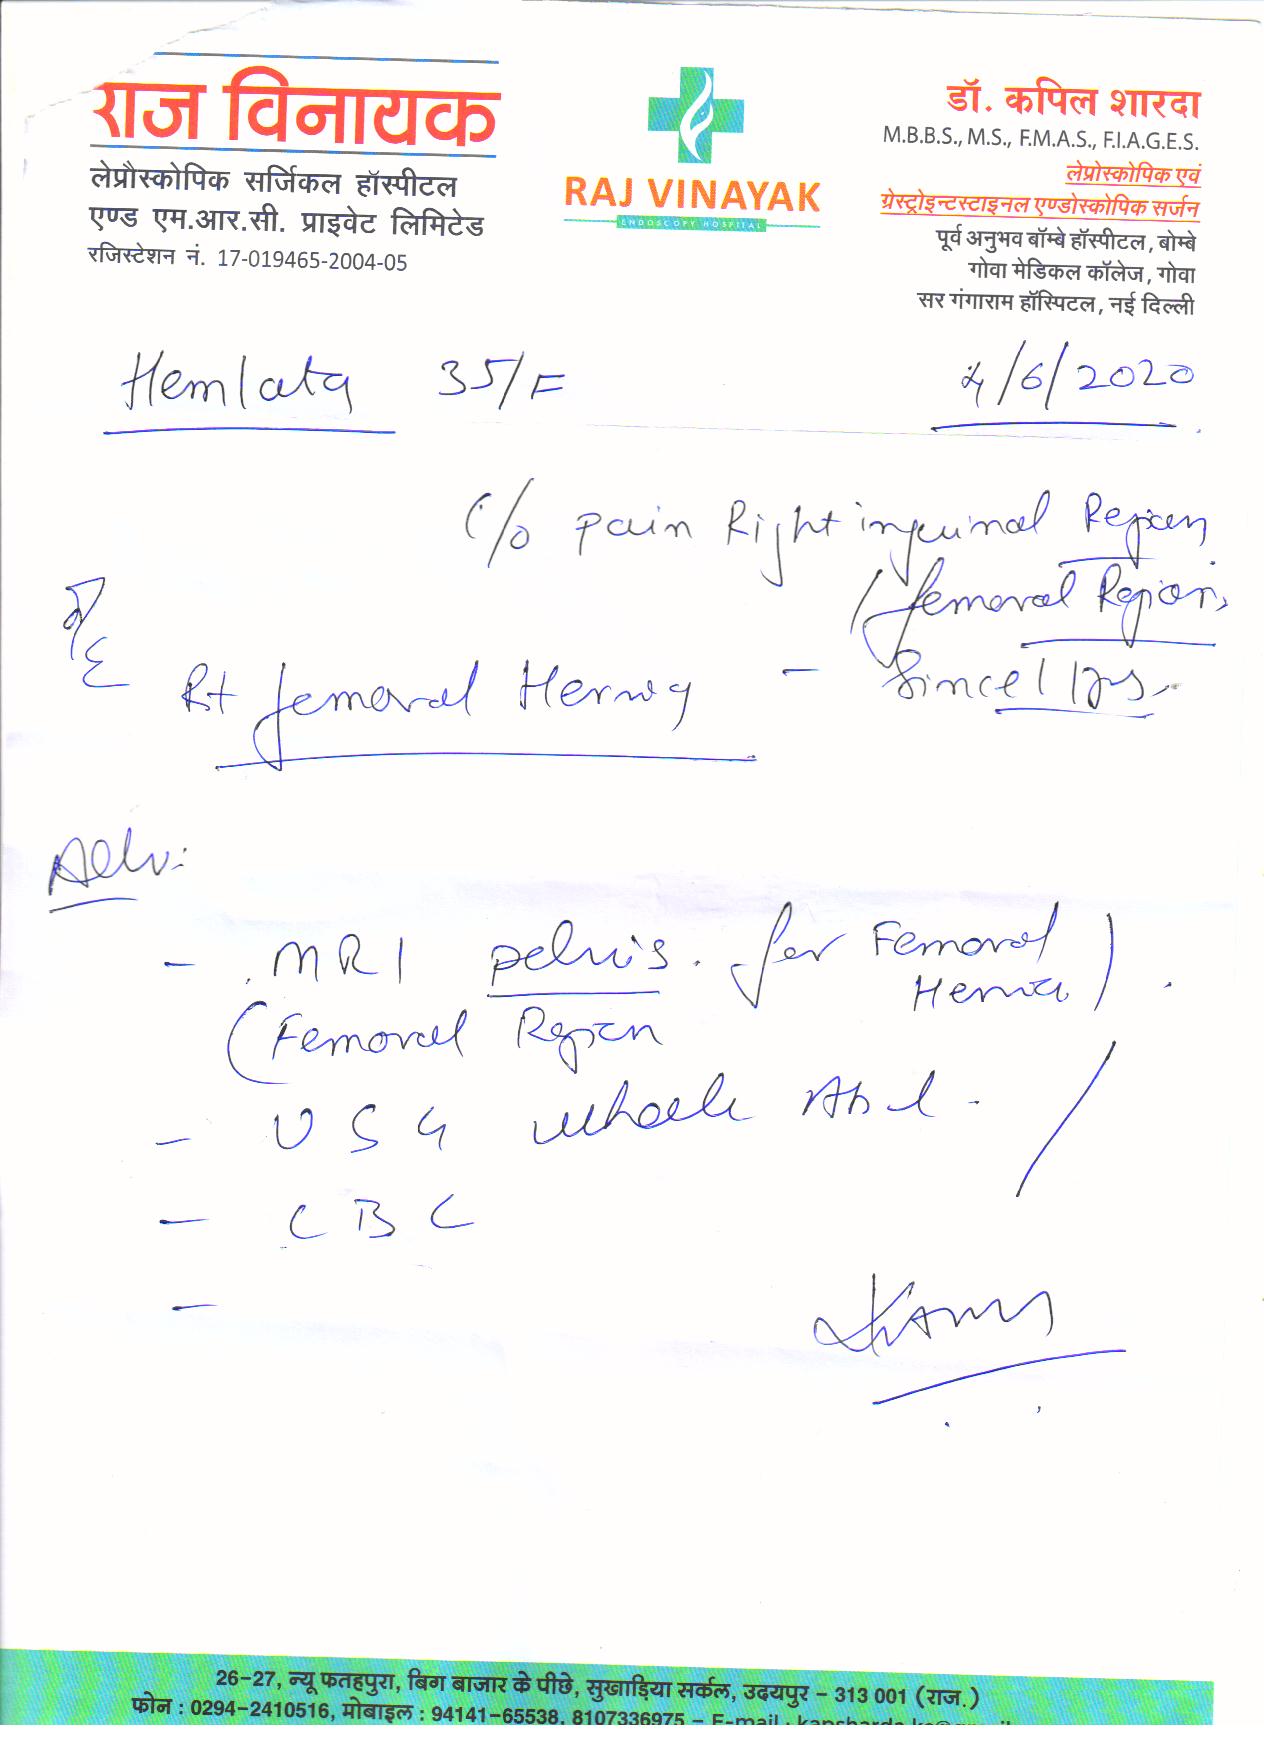 राज विनायक
लेप्रौस्कोपिक सर्जिकल हॉस्पीटल
एण्ड एम.आर.सी. प्राइवेट लिमिटेड
रजिस्टेशन नं. 17-019465-2004-05
RAJ VINAYAK
ENDOSCOPY HOSPITAL
डॉ. कपिल शारदा
M.B.B.S., M.S., F.M.A.S., F.I.A.G.E.S.
लेप्रोस्कोपिक एवं
ग्रेस्ट्रोइन्टस्टाइनल एण्डोस्कोपिक सर्जन
पूर्व अनुभव बॉम्बे हॉस्पीटल, बोम्बे
गोवा मेडिकल कॉलेज, गोवा
सर गंगाराम हॉस्पिटल, नई दिल्ली
Hemlata 35/F 4/6/2020
C/o Pain Right inguinal Region
/ femoral Region
O/E
Rt femoral Hernia - Since
Adv:
- MRI pelvis. for Femoral
Hernia)
(Femoral Region
- USG whole Abd.
- CBC
-
26-27, न्यू फतहपुरा, बिग बाजार के पीछे, सुखाड़िया सर्कल, उदयपुर – 313 001 (राज.)
फोन : 0294-2410516, मोबाइल : 94141-65538, 8107336975 – E-mail :